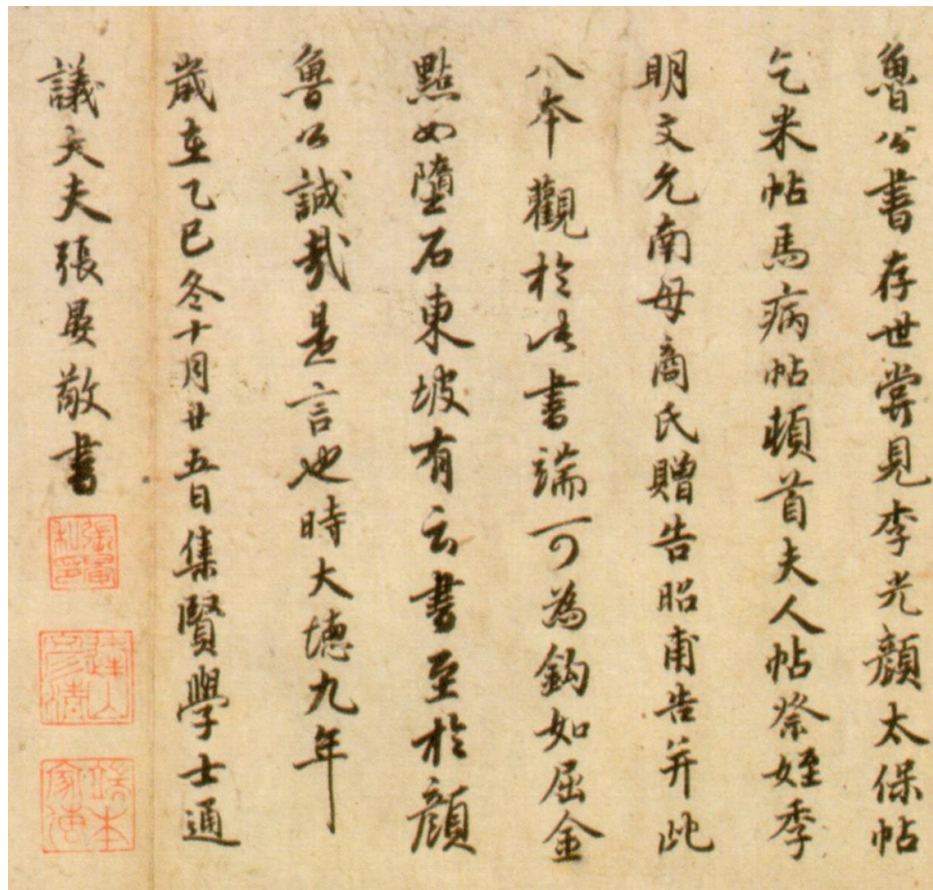 魯公書存世嘗見李光顏太保帖
乞米帖馬病帖頓首夫人帖祭姪季
明文允南母商氏贈告昭甫告并此
八本觀於此書端可為鈎如屈金
點如墮石東坡有云書至於顏
魯公誠哉是言也時大德九年
歲在乙巳冬十月廿五日集賢學士通
議大夫張晏敬書
張晏私印